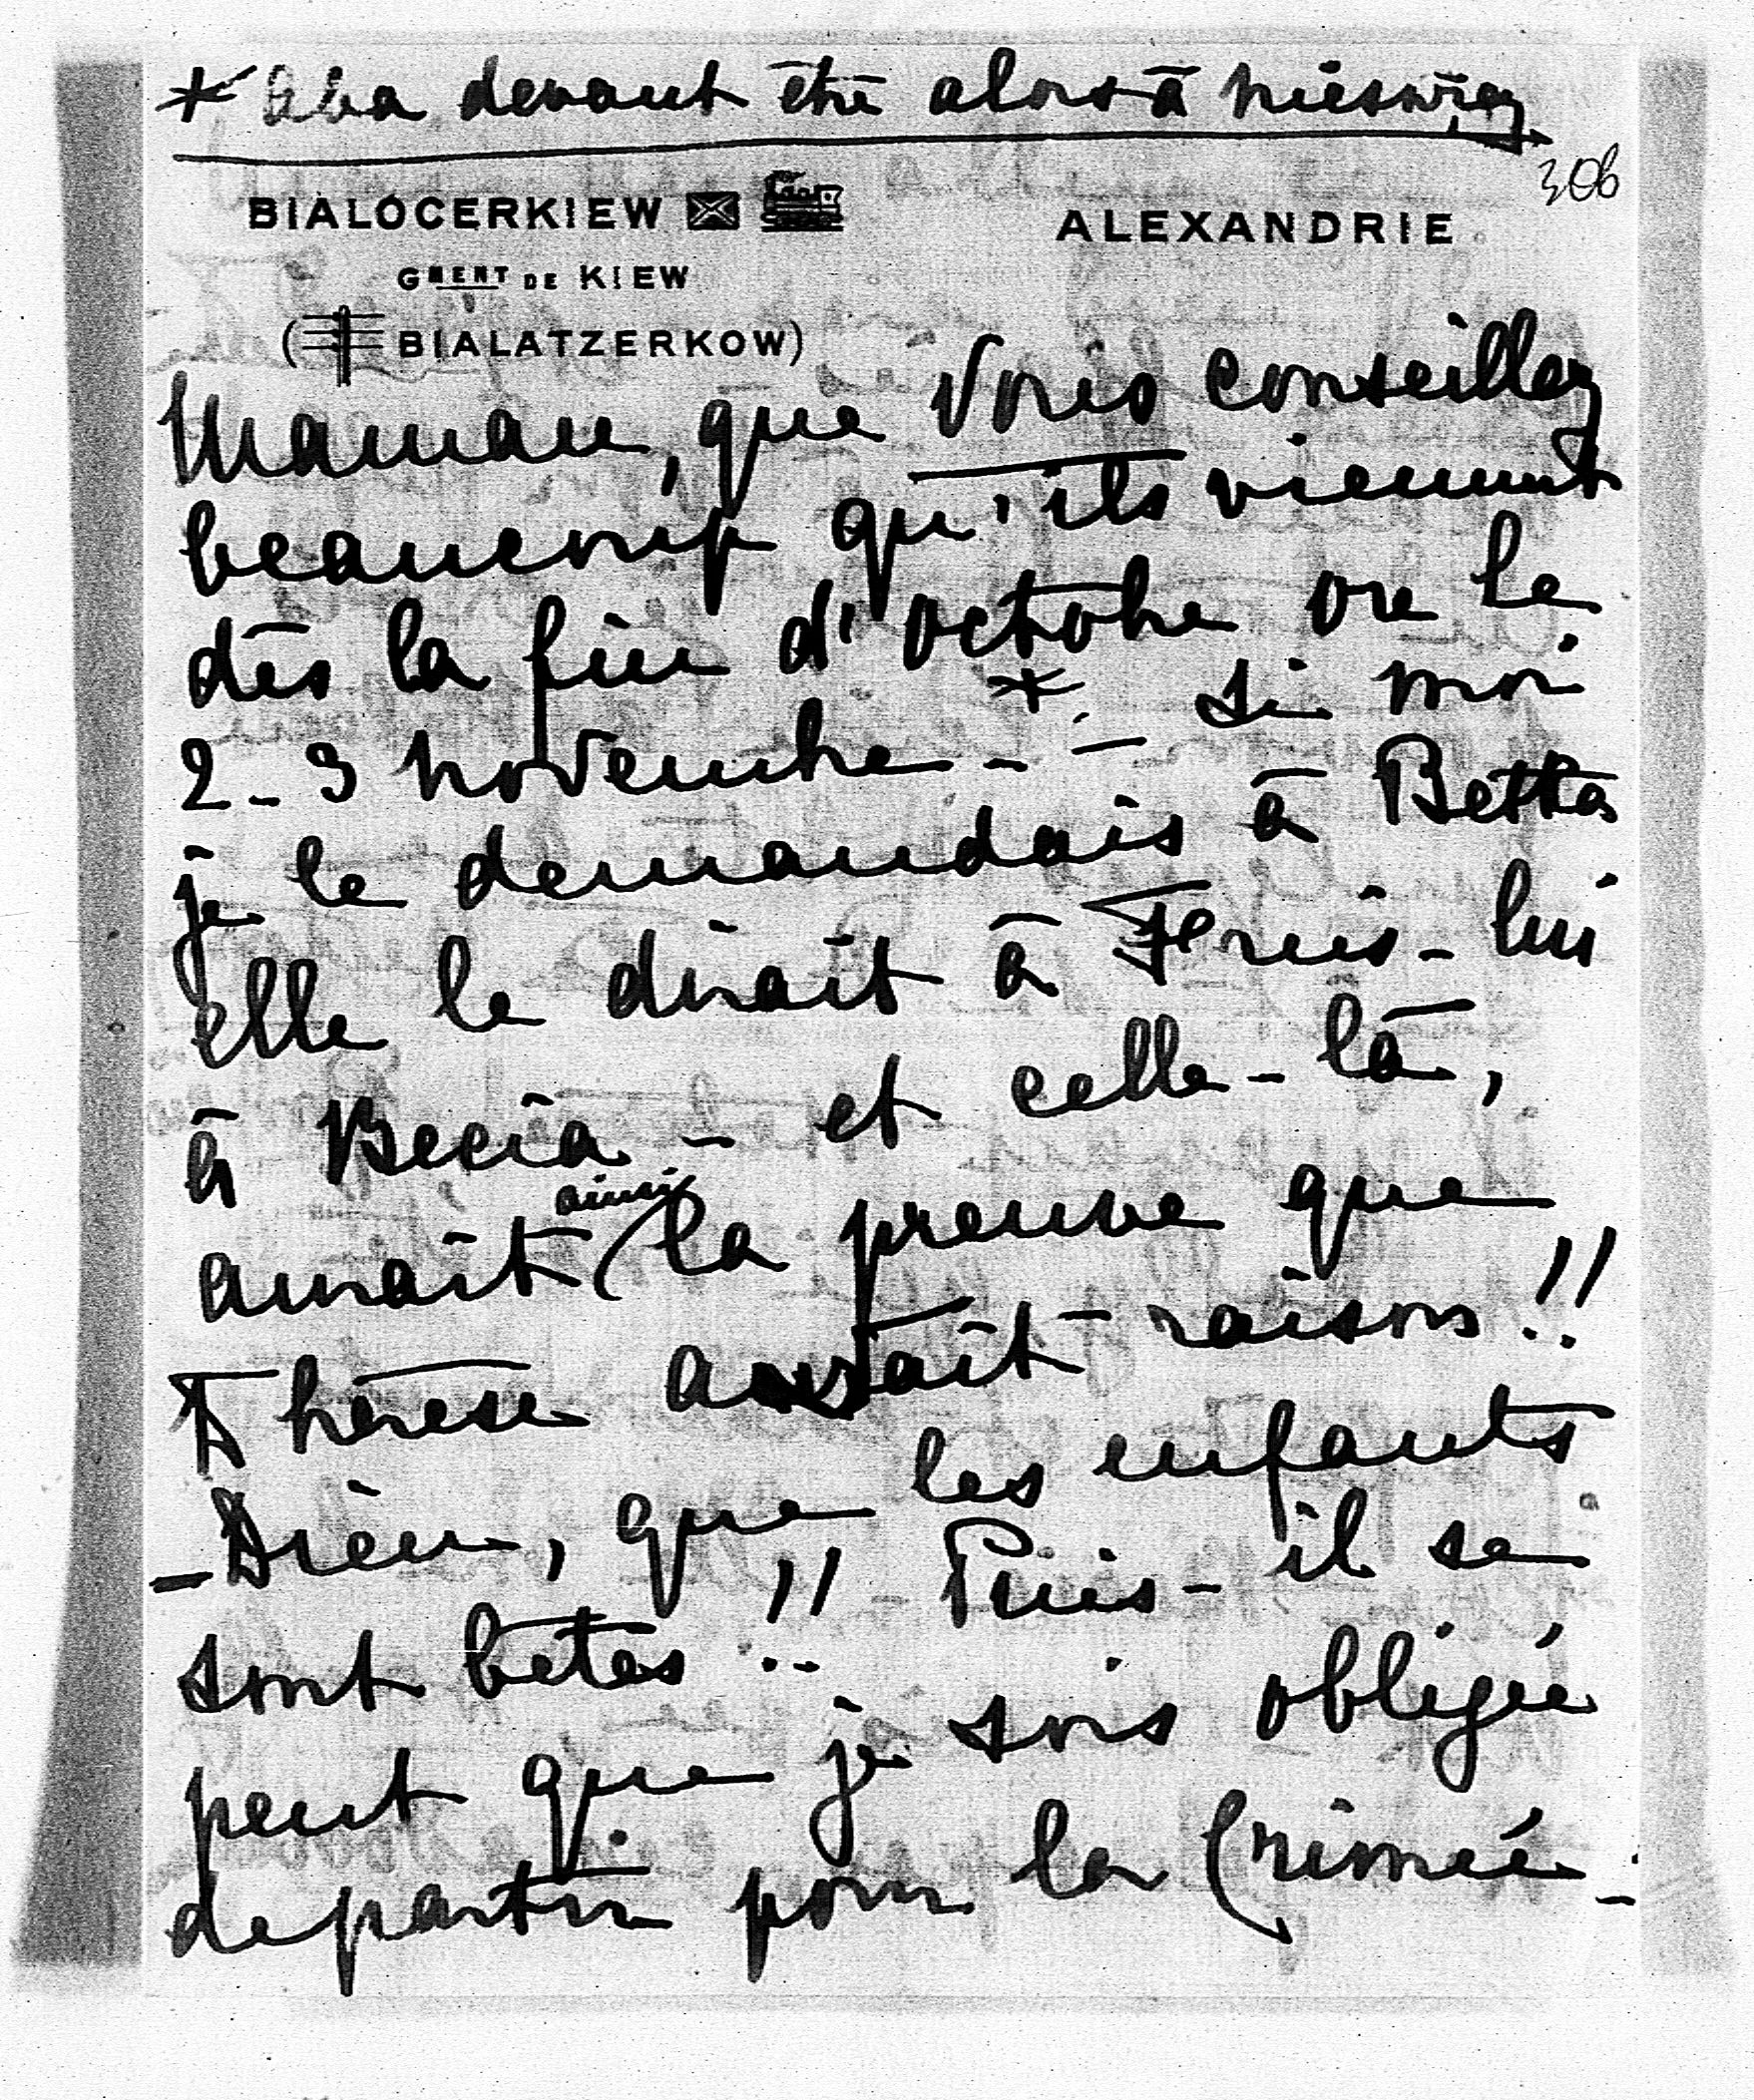 * Aba devant être alors à Nieśwież
306
BIALOCERKIEW ALEXANDRIE
GMENT DE KIEW
(BIALATZERKOW)
Maman, que Vous conseillez
beaucoup qu'ils viennent
dès la fin d'octobre ou le
2-3 novembre - * - si moi
je le demandais à Betka
elle le dirait à - lui
à Becia - et celle-là,
aurait ainsi la preuve que
Thérèse avait raison!!
- Dieu, que les enfants
sont bêtes!! Puis - il se
peut que je sois obligée
de partir pour la Crimée -